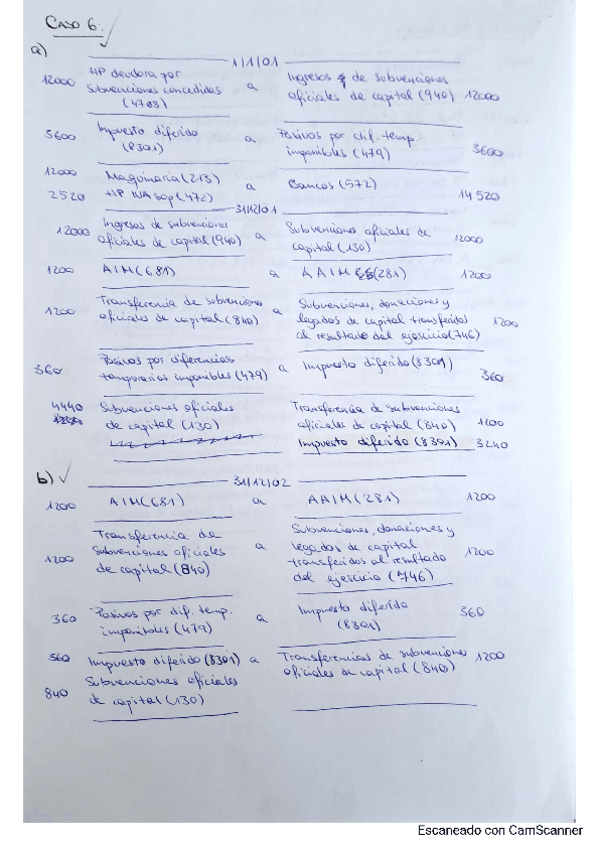 CASO 6:
a)
1/1/01
12000 HP deudora por subvenciones concedidas (4708) a Ingresos de subvenciones oficiales de capital (940) 12000
3600 Impuesto diferido (8301) a Pasivos por dif. temp. imponibles (479) 3600
12000 Maquinaria (213) a Bancos (572) 14520
2520 HP IVA sop (472)
31/12/01
12000 Ingresos de subvenciones oficiales de capital (940) a Subvenciones oficiales de capital (130) 12000
1200 AIM (681) a AAIM (281) 1200
1200 Transferencia de subvenciones oficiales de capital (840) a Subvenciones, donaciones y legados de capital transferidos al resultado del ejercicio (746) 1200
360 Pasivos por diferencias temporarias imponibles (479) a Impuesto diferido (8301) 360
4440 Subvenciones oficiales de capital (130) Transferencia de subvenciones oficiales de capital (840) 1200
Impuesto diferido (8301) 3240
b)
31/12/02
1200 AIM (681) a AAIM (281) 1200
1200 Transferencia de subvenciones oficiales de capital (840) a Subvenciones, donaciones y legados de capital transferidos al resultado del ejercicio (746) 1200
360 Pasivos por dif. temp. imponibles (479) a Impuesto diferido (8301) 360
360 Impuesto diferido (8301) a Transferencias de subvenciones oficiales de capital (840) 1200
840 Subvenciones oficiales de capital (130)
Escaneado con CamScanner